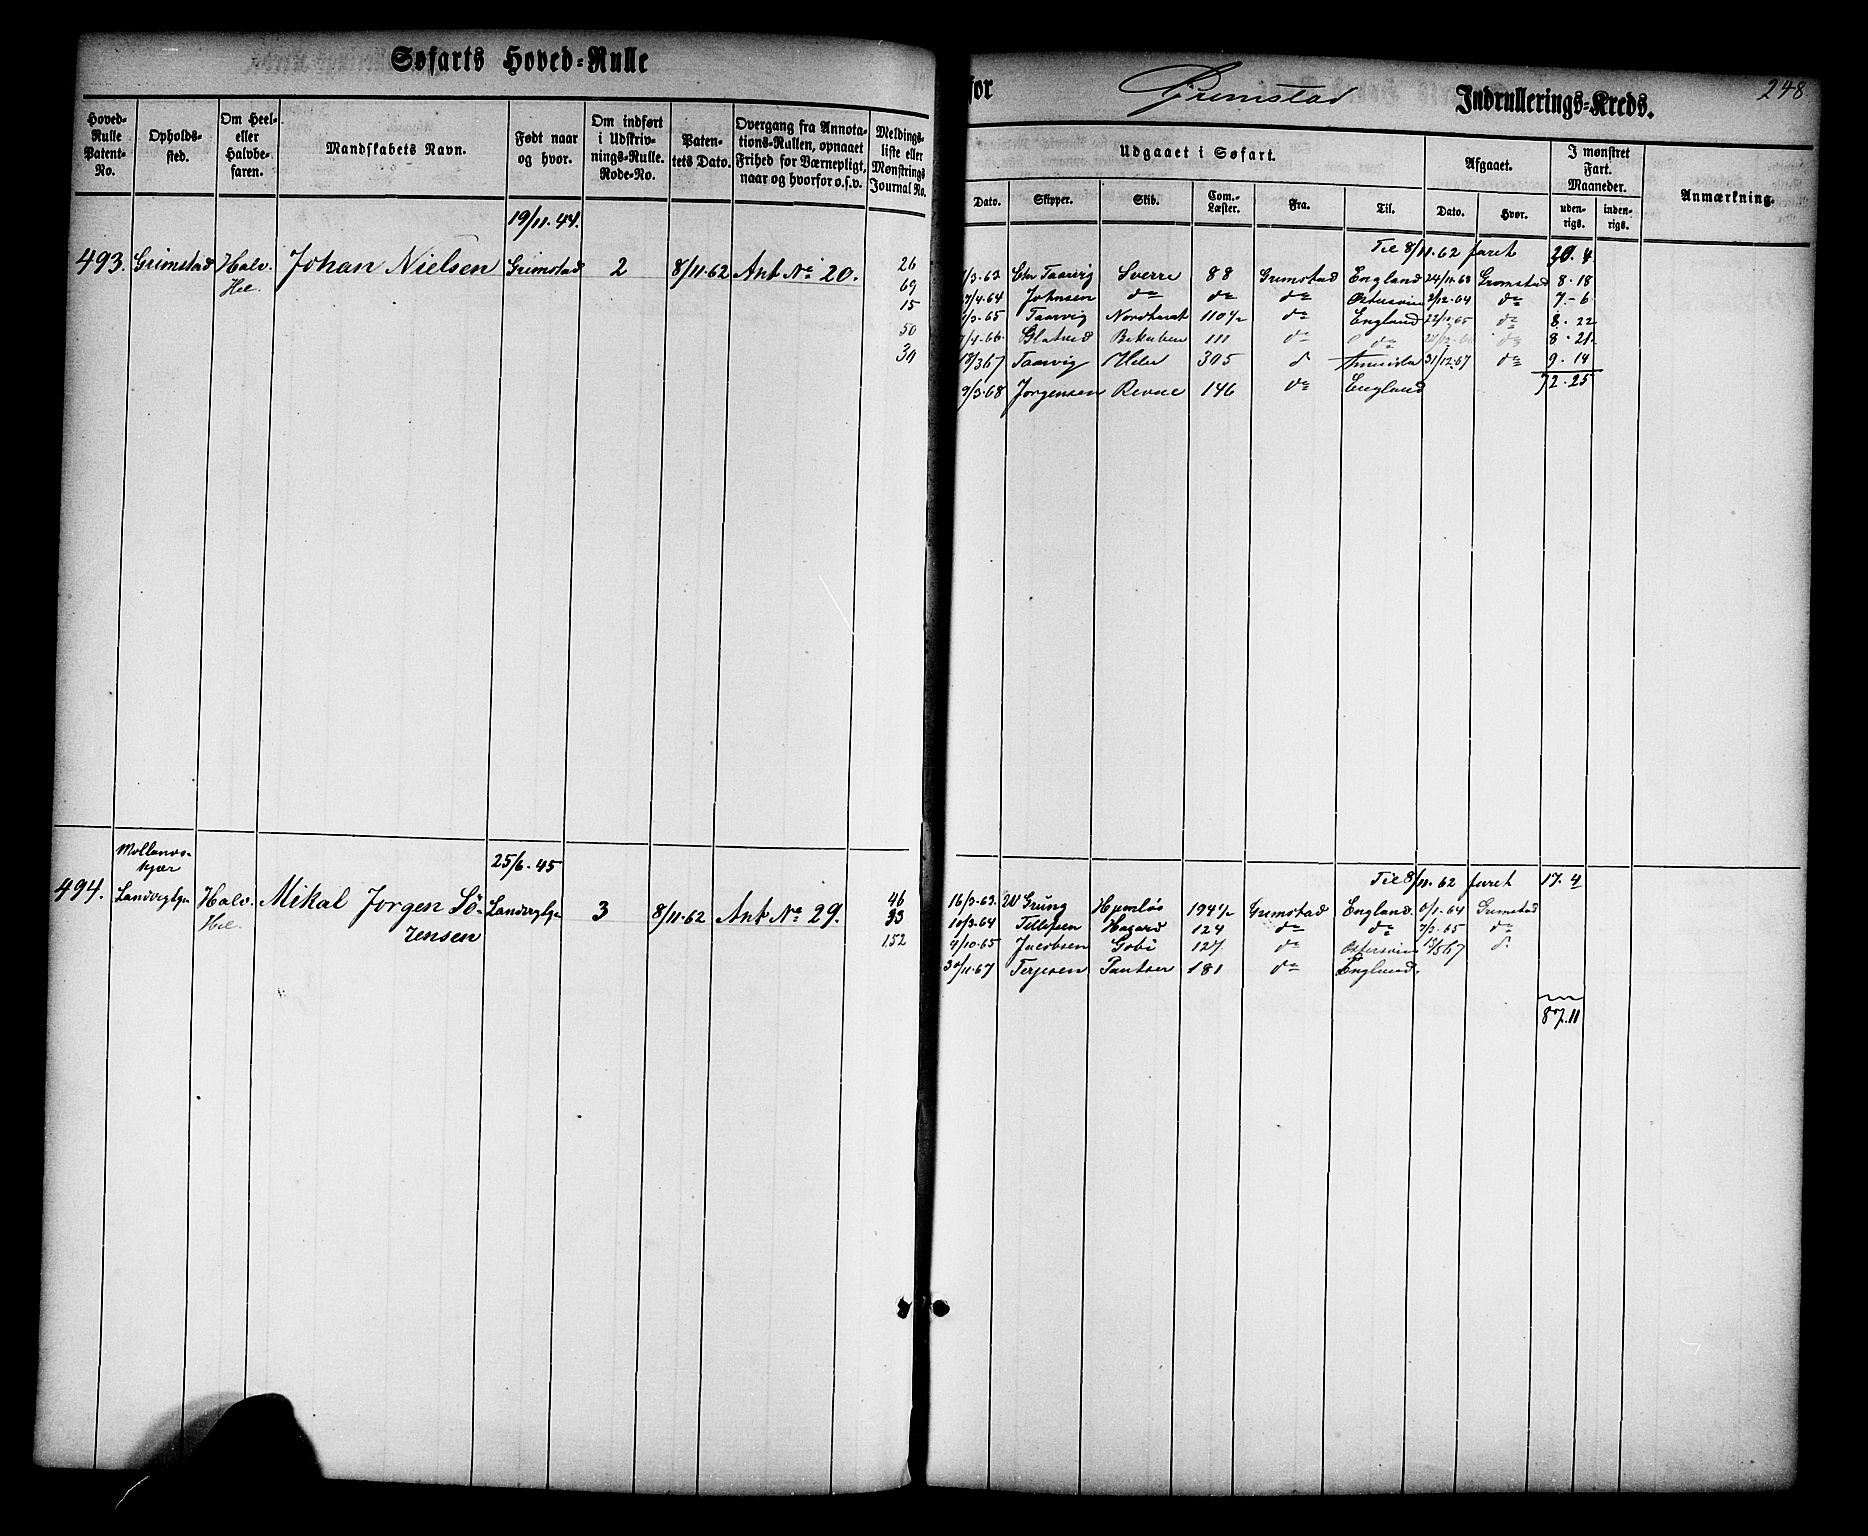 Søfarts Hoved-Rulle
for Grimstad Indrullerings-Kreds.
248
Hoved-Rulle Patent-No.
Opholds-sted.
Om Heel- eller Halvbe-faren.
Mandskabets Navn.
Født naar og hvor.
Om indført i Udskriv-nings-Rulle. Rode-No.
Paten-tets Dato.
Overgang fra Annota-tions-Rullen, opnaaet Frihed for Værnepligt, naar og hvorfor o.s.v.
Meldings-liste eller Mønstrings Journal No.
Udgaaet i Søfart.
Dato. Skipper. Skib. Com.-Læster. Fra. Til.
Afgaaet.
Dato. Hvor.
I mønstret Fart. Maaneder.
uden-rigs. inden-rigs.
Anmærkning.
19/11.44.
493. Grimstad Halv. Johan Nielsen Grimstad 2 8/11.62 Ant No 20.
Hel.
26
69
15
50
30
Til 8/11.62 faret 20.4
/3.63 Chr Taarvig Sverre 88 Grimstad England 24/11.63 Gromstad 8.18
/4.64 Johnsen do do do Østersøen 2/12.64 do 7-6
/3.65 Taarvig 110½ do England 22/11.65 do 8.22
/4.66 Bikuben 111 do do do 8.21
18/3.67 Taarvig 305 d 31/12.67 do 9.14
72.25
9/3.68 Jørgensen 146 do England
Landvig 25/6.45
494. Halv. Mikal Jorgen Sö- 3 8/11.62 Ant No 29.
Hel. rensen
46
33
152
Til 8/11.62 faret 17.4
16/3.63. W Grung Hjemløs 194½ Grimstad England 6/1.64 Grimstad
10/3.64 Tellefsen Hazard 124 do do 7/3.65 do
4/10.65 Jacobsen Gobi 127 do Østersøen 13/5.67 d
30/11.67 Terjesen Pantser 181 do England.
87.11